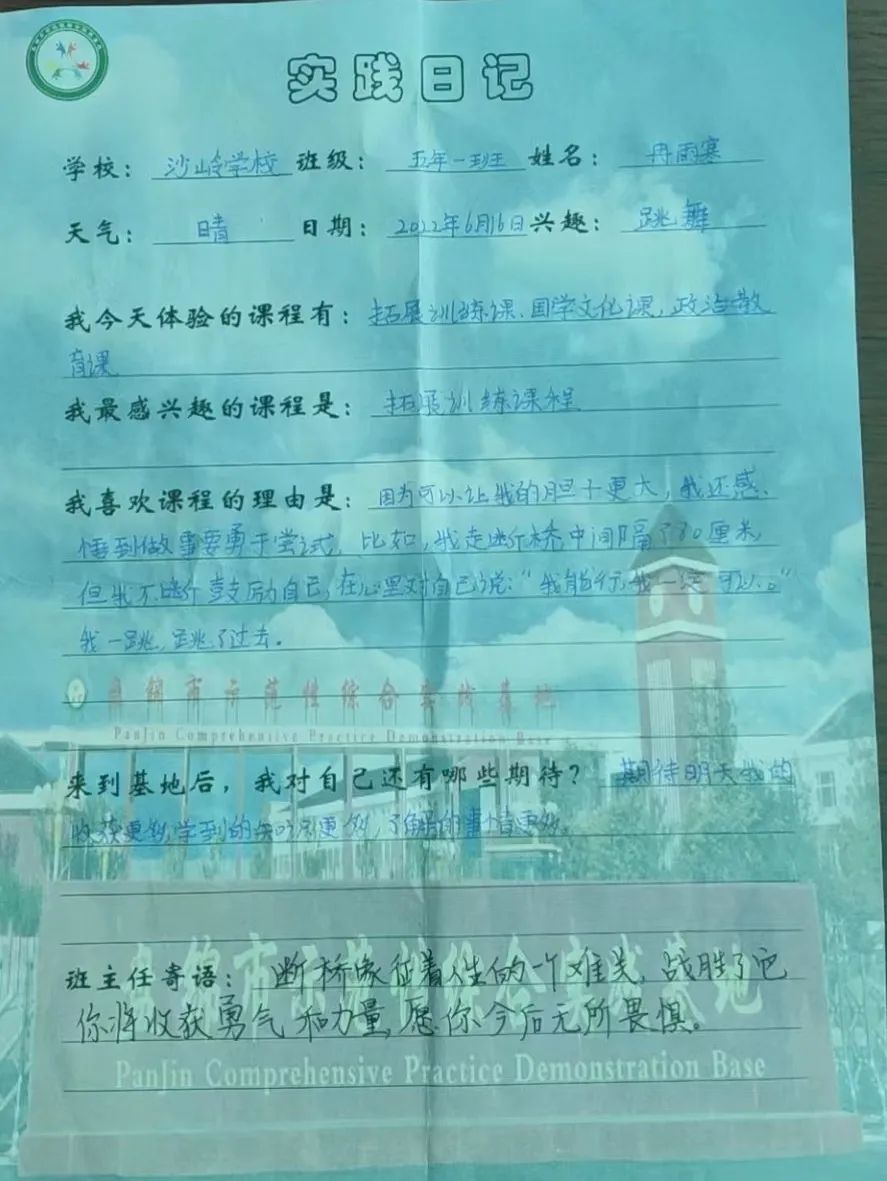 实践日记
学校：沙岭学校 班级：五年一班 姓名：冉雨寒
天气：晴 日期：2022年6月16日 兴趣：跳舞
我今天体验的课程有：拓展训练课、国学文化课，政治教
育课
我最感兴趣的课程是：拓展训练课程
我喜欢课程的理由是：因为可以让我的胆子更大，我还感
悟到做事要勇于尝试，比如，我走断桥中间隔了80厘米，
但我不断鼓励自己，在心里对自己说：“我能行，我一定可以。”
我一跳，跳了过去。
盘锦市示范性综合实践基地
PanJin Comprehensive Practice Demonstration Base
来到基地后，我对自己还有哪些期待？期待明天我的
收获更多，学到的知识更多，了解的事情更多。
班主任寄语：断桥象征着人生的一个难关，战胜了它
你将收获勇气和力量，愿你今后无所畏惧。
盘锦市示范性综合实践基地
PanJin Comprehensive Practice Demonstration Base